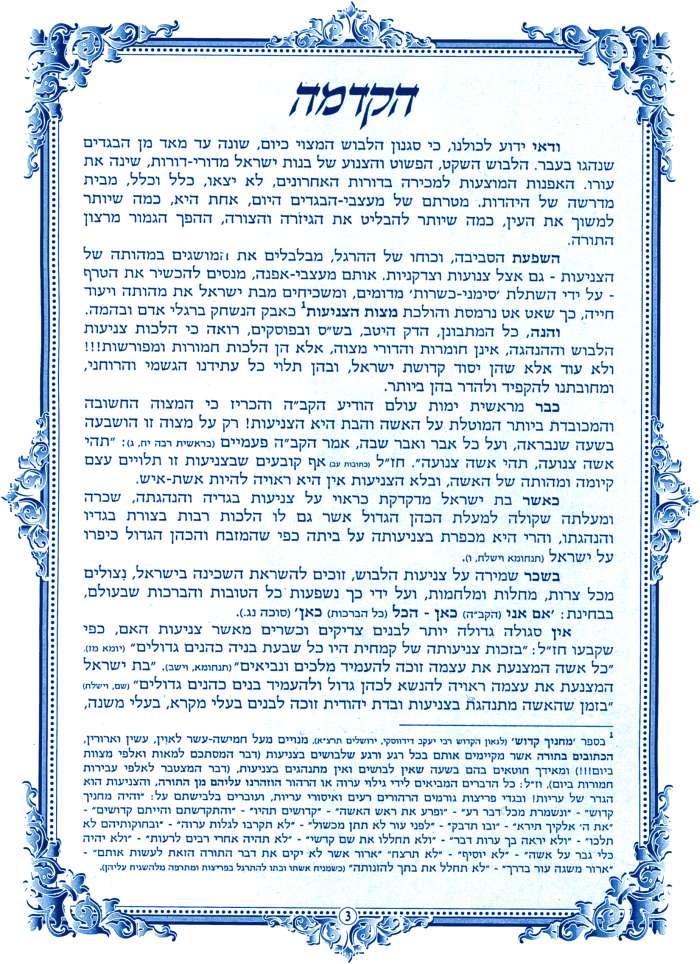 הקדמה
ודאי ידוע לכולנו, כי סגנון הלבוש המצוי כיום, שונה עד מאד מן הבגדים
שנהגו בעבר. הלבוש השקט, הפשוט והצנוע של בנות ישראל מדורי-דורות, שינה את
עורו. האפנות המוצעות למכירה בדורות האחרונים, לא יצאו, כלל וכלל, מבית
מדרשה של היהדות. מטרתם של מעצבי-הבגדים היום, אחת היא, כמה שיותר
למשוך את העין, כמה שיותר להבליט את הגיזרה והצורה, ההפך הגמור מרצון
התורה.
השפעת הסביבה, וכוחו של ההרגל, מבלבלים את המושגים במהותה של
הצניעות - גם אצל צנועות וצדקניות. אותם מעצבי-אפנה, מנסים להכשיר את הטרף
- על ידי השתלת 'סימני-כשרות' מדומים, ומשכיחים מבת ישראל את מהותה ויעוד
חייה, כך שאט אט נרמסת והולכת מצות הצניעות1 כאבק הנשחק ברגלי אדם ובהמה.
והנה, כל המתבונן, הדק היטב, בש"ס ובפוסקים, רואה כי הלכות צניעות
הלבוש וההנהגה, אינן חומרות והדורי מצוה, אלא הן הלכות חמורות ומפורשות!!!
ולא עוד אלא שהן יסוד קדושת ישראל, ובהן תלוי כל עתידנו הגשמי והרוחני,
ומחובתנו להקפיד ולהדר בהן ביותר.
כבר מראשית ימות עולם הודיע הקב"ה והכריז כי המצוה החשובה
והמכובדת ביותר המוטלת על האשה והבת היא הצניעות! רק על מצוה זו הושבעה
בשעה שנבראה, ועל כל אבר ואבר שבה, אמר הקב"ה פעמיים (בראשית רבה יח, ג): "תהי
אשה צנועה, תהי אשה צנועה". חז"ל (כתובות עב) אף קובעים שבצניעות זו תלויים עצם
קיומה ומהותה של האשה, ובלא הצניעות אין היא ראויה להיות אשת-איש.
כאשר בת ישראל מדקדקת כראוי על צניעות בגדיה והנהגתה, שכרה
ומעלתה שקולה למעלת הכהן הגדול אשר גם לו הלכות רבות בצורת בגדיו
והנהגתו, והרי היא מכפרת בצניעותה על ביתה כפי שהמזבח והכהן הגדול כיפרו
על ישראל (תנחומא וישלח, ו).
בשכר שמירה על צניעות הלבוש, זוכים להשראת השכינה בישראל, נצולים
מכל צרות, מחלות ומלחמות, ועל ידי כך נשפעות כל הטובות והברכות שבעולם,
בבחינת: 'אם אני (הקב"ה) כאן - הכל (כל הברכות) כאן' (סוכה נג.).
אין סגולה גדולה יותר לבנים צדיקים וכשרים מאשר צניעות האם, כפי
שקבעו חז"ל: "בזכות צניעותה של קמחית היו כל שבעת בניה כהנים גדולים" (יומא מז).
"כל אשה המצנעת את עצמה זוכה להעמיד מלכים ונביאים" (תנחומא, וישב). "בת ישראל
המצנעת את עצמה ראויה להנשא לכהן גדול ולהעמיד בנים כהנים גדולים" (שם, וישלח)
"בזמן שהאשה מתנהגת בצניעות ובדת יהודית זוכה לבנים בעלי מקרא, בעלי משנה,
1 בספר 'מחניך קדוש' (לגאון הקדוש רבי יעקב דידווסקי, ירושלים תרצ"א), מנויים מעל חמישה-עשר לאוין, עשין וארורין,
הכתובים בתורה אשר מקיימים אותם בכל רגע ורגע שלבושים בצניעות (דבר המסתכם למאות ואלפי מצוות
ביום!!!) ומאידך חוטאים בהם בשעה שאין לבושים ואין מתנהגים בצניעות, (דבר המצטבר לאלפי עבירות
חמורות ביום), וז"ל: כל הדברים המביאים לידי גילוי ערוה או הרהור הוזהרנו עליהם מן התורה, והצניעות הוא
הגדר של עריות! ובגדי פריצות גורמים הרהורים רעים ואיסורי עריות, ועוברים בלבישתם על: "והיה מחניך
קדוש" - "ונשמרת מכל דבר רע" - "ופרע את ראש האשה" - "קדושים תהיו" - "והתקדשתם והייתם קדושים" -
"את ה' אלקיך תירא" - "ובו תדבק" - "לפני עור לא תתן מכשול" - "לא תקרבו לגלות ערוה" - "ובחוקותיהם לא
תלכו" - "ולא יראה בך ערות דבר" - "ולא תחללו את שם קדשי" - "לא תהיה אחרי רבים לרעות" - "ולא יהיה
כלי גבר על אשה" - "לא יוסיף" - "לא תרצח" "ארור אשר לא יקים את דבר התורה הזאת לעשות אותם" -
"ארור משגה עור בדרך" - "לא תחלל את בתך להזנותה" (כשמניח אשתו ובתו להתרגל בפריצות ומתרפה מלהשגיח עליהן).
3